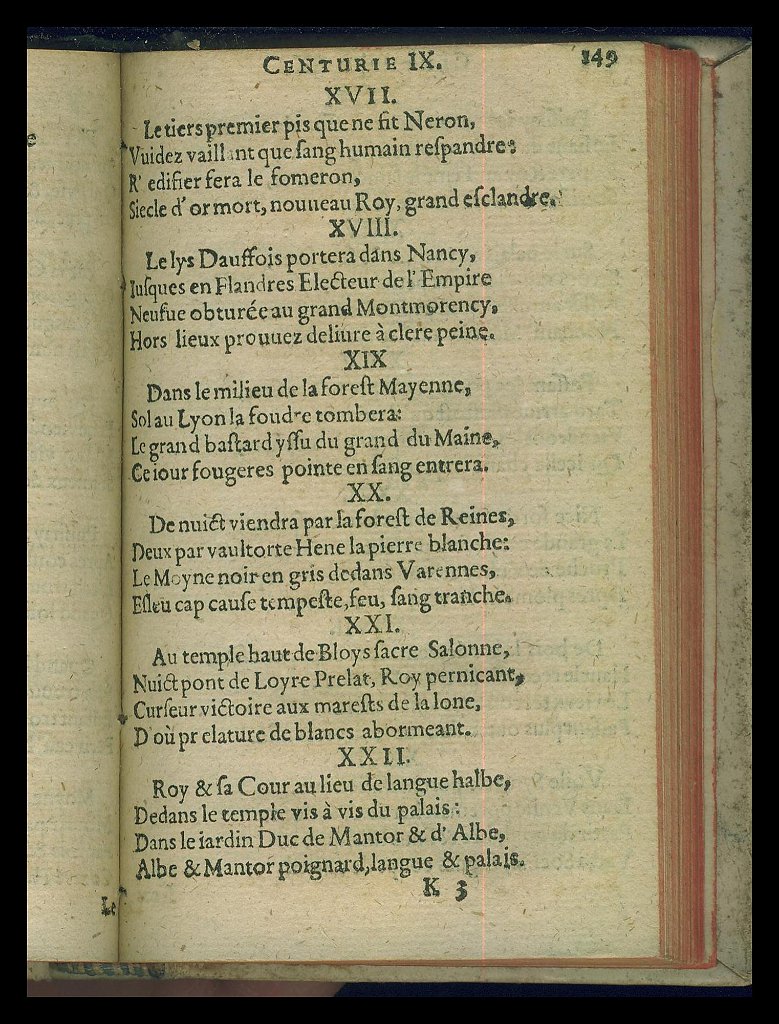 CENTURIE IX. 149
XVII.
Le tiers premier pis que ne fit Neron,
Vuidez vaillant que ſang humain reſpandre:
R' edifier fera le fomeron,
Siecle d' or mort, nouueau Roy, grand eſclandre.
XVIII.
Le lys Dauffois portera dans Nancy,
Iuſques en Flandres Electeur de l' Empire
Neufue obturée au grand Montmorency,
Hors lieux prouuez deliure à clere peine.
XIX
Dans le milieu de la foreſt Mayenne,
Sol au Lyon la foudre tombera:
Le grand baſtard yſſu du grand du Maine,
Ce iour fougeres pointe en ſang entrera.
XX.
De nuict viendra par la foreſt de Reines,
Deux par vaultorte Hene la pierre blanche:
Le Moyne noir en gris dedans Varennes,
Eſleu cap cauſe tempeſte, feu, ſang tranche.
XXI.
Au temple haut de Bloys ſacre Salonne,
Nuict pont de Loyre Prelat, Roy pernicant,
Curſeur victoire aux mareſts de la lone,
D'où pr elature de blancs abormeant.
XXII.
Roy & ſa Cour au lieu de langue halbe,
Dedans le temple vis à vis du palais:
Dans le iardin Duc de Mantor & d' Albe,
Albe & Mantor poignard, langue & palais.
K 3
Le